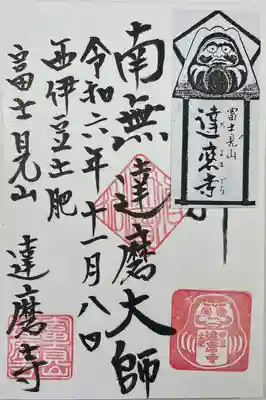 南無達磨大師
令和六年十一月八日
西伊豆土肥
富士見山
達磨寺
富士見山
達磨寺
だるまでら